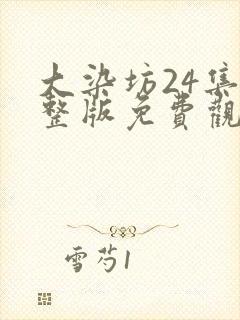 大染坊24集
整版免費觀
雪芍1